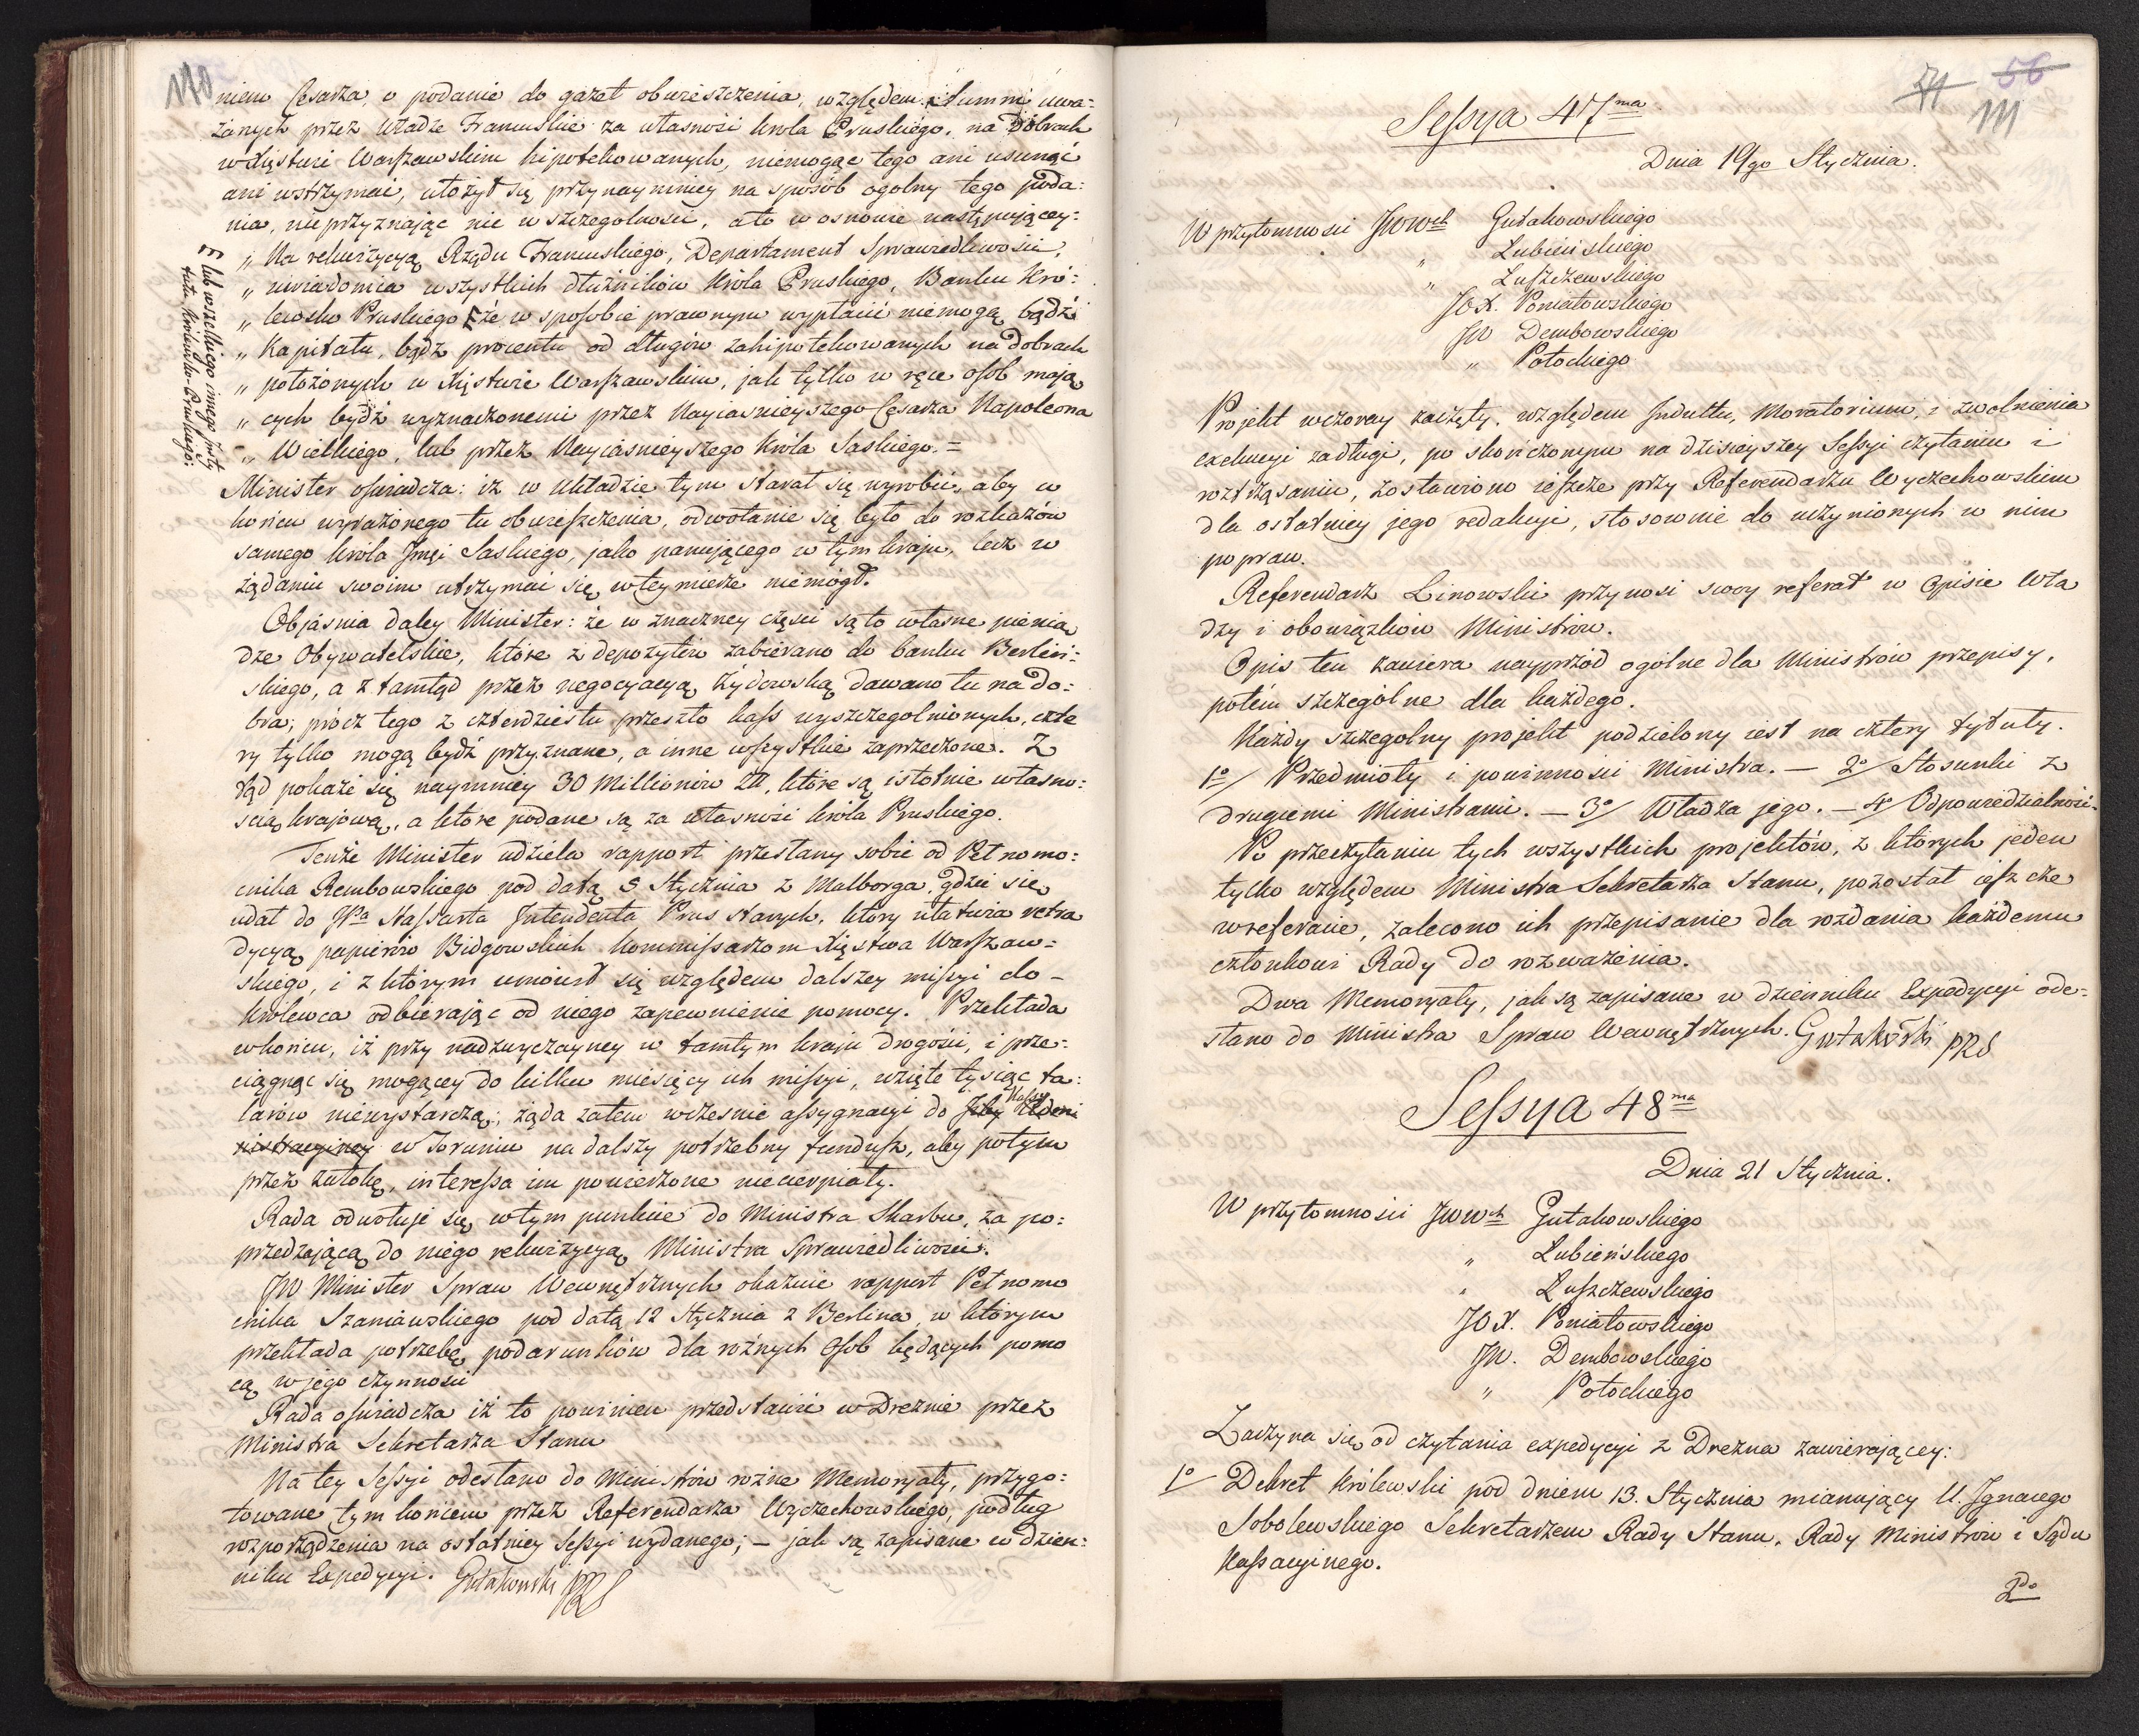 110
niem Cesarza, o podanie do gazet obwieszczenia, względem summ uwa=
żanych przez Władze Francuskie za własność Króla Pruskiego, na dobrach
w Xięstwie Warszawskim hipotekowanych, niemogąc tego ani usunąć
ani wstrzymać, ułożył się przynaymniey na sposób ogolny tego poda=
nia, nieprzyznając nic w szczegolności, a to w osnowie następuiącey:
„ Na rekwizycyą Rządu Francuskiego, Departament Sprawiedliwości,
„ uwiadomia wszystkich dłużników Króla Pruskiego, Banku Kró=
„ lewsko Pruskiego że w sposobie prawnym wypłacić niemogą bądź
„ Kapitału, bądz procentu od długów zahipotekowanych na dobrach
„ położonych w Xięstwie Warszawskim, jak tylko w ręce osob mają
„ cych bydź wyznaczonemi przez Nayiasnieyszego Cesarza Napoleona
„ Wielkiego, lub przez Nayiaśnieyszego Króla Saskiego. =
lub wszelkiego innego Insty
tutu Królewsko-Pruskiego:
Minister oświadcza: iż w układzie tym starał się wyrobić, aby w
końcu wyrażonego tu obwieszczenia, odwołanie się było do rozkazów
samego Króla Jmci Saskiego, jako panującego w tym kraju, lecz w
żądaniu swoim utrzymać się w tey mierze niemógł.
Objaśnia daley Minister: że w znaczney części są to własne pienią
dze Obywatelskie, które z depozytów zabierano do banku Berliń=
skiego, a z tamtąd przez negocyacyą Żydowską dawano tu na do=
bra; prócz tego z czterdziestu przeszło kass wyszczegolnionych, czte
ry tylko mogą bydź przyznane, a inne wszystkie zaprzeczone. Z
tąd pokaże się naymniey 30 Millionów Zł, które są istotnie własno=
scią krajową, a które podane są za własność Króla Pruskiego.
Tenże Minister udziela rapport przesłany sobie od Pełnomo=
cnika Rembowskiego pod datą 5 Stycznia z Malborga, gdzie się
udał do JPa Stassarta Intendenta Prus starych, który ułatwia retra
dycyą papierów Bidgowskich Kommissarzom Xięstwa Warszaw=
skiego, i z którym umówił się względem dalszey missyi do -
Królewca odbierając od niego zapewnienie pomocy. Przekłada
w końcu, iż przy nadzwyczayney w tamtym kraju drogości, i prze=
ciągnąć się mogącey do kilku miesięcy ich missyi, wzięte tysiąc ta=
larów niewystarczą; żąda zatem wcześnie assygnacyi do Izby Kassy Admi
nistracyiney w Toruniu na dalszy potrzebny fundusz, aby potym
przez zwłokę, interessa im powierzone niecierpiały.
Rada odwołuje się w tym punkcie do Ministra Skarbu, za po=
przedzającą do niego rekwizycyą Ministra Sprawiedliwości.
JW Minister Spraw Wewnętrznych okazuie rapport Pełnomo
cnika Szaniawskiego pod datą 12 Stycznia z Berlina, w którym
przekłada potrzebę podarunków dla rożnych Osob będących pomo
cą w jego czynności
Rada oświadcza iż to powinien przedstawić w Dreznie przez
Ministra Sekretarza Stanu
Na tey Sessyi odesłano do Ministrów rożne Memoryały, przygo=
towane tym końcem przez Referendarza Wyczechowskiego, podług
rozporządzenia na ostatniey Sessyi wydanego; – jak są zapisane w dzien=
niku Expedycyi. Gutakowski PRS
71 56
111
Sessya 47ma
Dnia 19go Stycznia.
W przytomności JWWch Gutakowskiego
„ Lubieńskiego
„ Luszczewskiego
JOX. Poniatowskiego
JW Dembowskiego
„ Potockiego
Projekt wczoray zaczęty, względem Indultu, Moratorium, i zwolnienia
exekucyi za długi, po skończonym na dzisieyszey Sessyi czytaniu i
roztrząsaniu, zostawiono ieszcze przy Referendarzu Wyczechowskim
dla ostatniey jego redakcyi, stosownie do uczynionych w nim
popraw.
Referendarz Linowski przynosi swoy referat w Opisie Wła
dzy i obowiązków Ministrów.
Opis ten zawiera nayprzód ogólne dla Ministrów przepisy,
potém szczególne dla każdego.
Każdy szczegolny projekt podzielony iest na cztery tytuły.
1o/ Przedmioty i powinności Ministra. — 2o/ Stosunki z
drugiemi Ministrami. — 3o/ Władza jego. — 4o/ Odpowiedzialność.
Po przeczytaniu tych wszystkich projektów, z których jeden
tylko względem Ministra Sekretarza Stanu, pozostał ieszcze
w referacie, zalecono ich przepisanie dla rozdania każdemu
członkowi Rady do rozważenia.
Dwa Memoryały, jak są zapisane w dzienniku Expedycyi ode=
słano do Ministra Spraw Wewnętrznych. Gutakowski PRS
Sessya 48ma
Dnia 21 Stycznia.
W przytomności JWWch Gutakowskiego
„ Lubieńskiego
„ Luszczewskiego
JOX. Poniatowskiego
JW. Dembowskiego
„ Potockiego
Zaczyna się od czytania expedycyi z Drezna zawierającey:
1o Dekret Królewski pod dniem 13. Stycznia mianujący U. Ignacego
Sobolewskiego Sekretarzem Rady Stanu, Rady Ministrów i Sądu
Kassacyinego.
2do